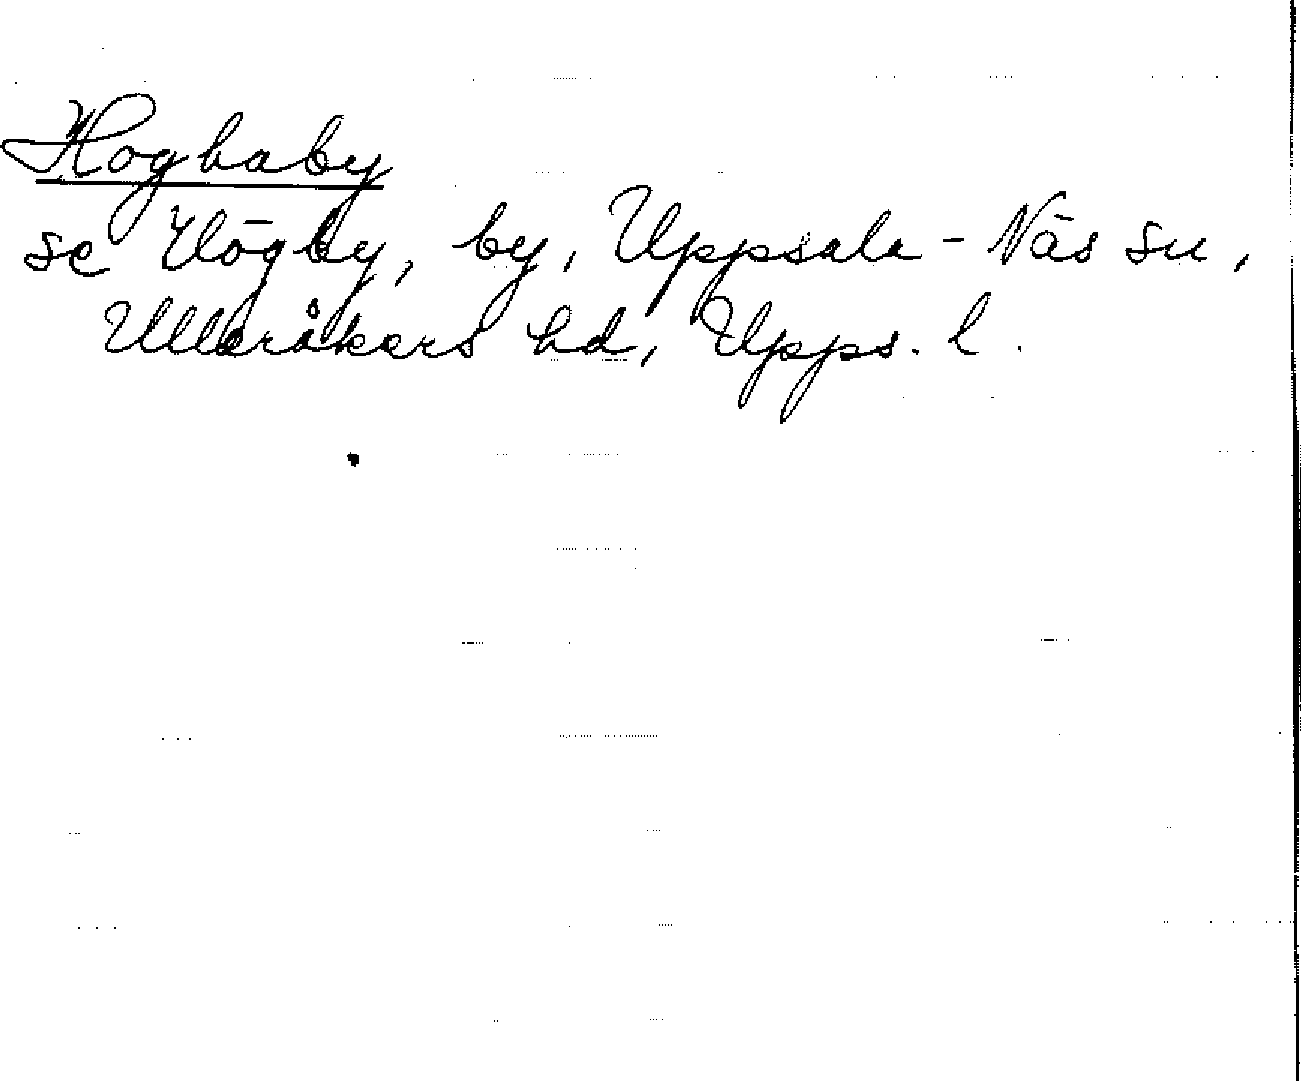 Hoghaby
se Högby, by, Uppsala-Näs sn,
Ulleråkers hd, Upps. l.